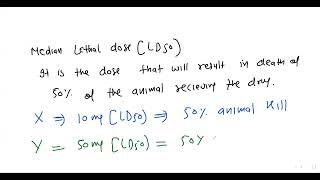 Median Lethal dose (LD50)
It is the dose that will result in death of
50% of the animal recieving the drug.
X ⇒ 10 mg (LD50) ⇒ 50% animal kill
Y = 50 mg (LD50) = 50%